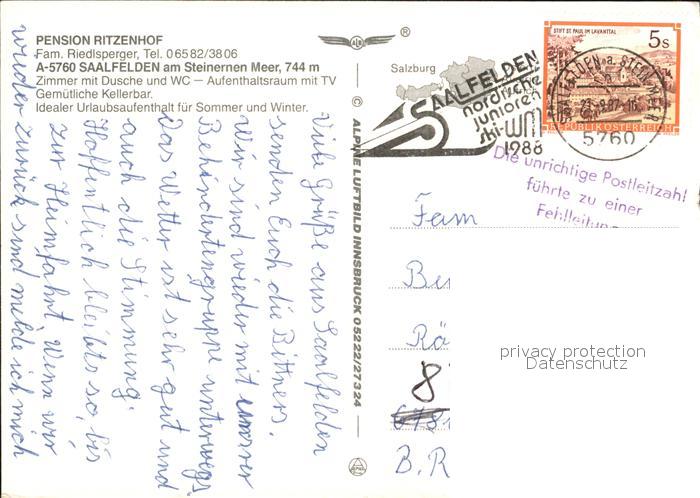 PENSION RITZENHOF
Fam. Riedlsperger, Tel. 06582/3806
A-5760 SAALFELDEN am Steinernen Meer, 744 m
Zimmer mit Dusche und WC — Aufenthaltsraum mit TV
Gemütliche Kellerbar.
Idealer Urlaubsaufenthalt für Sommer und Winter.
Viele Grüße aus Saalfelden
senden Euch die Bittners.
Wir sind wieder mit unserer
Behindertengruppe unterwegs.
Das Wetter ist sehr gut und
auch die Stimmung.
Hoffentlich bleibt's so, bis
zur Heimfahrt. Wenn wir
wieder zurück sind melde ich mich
© ALPINE LUFTBILD INNSBRUCK 05222/27324
Salzburg
SAALFELDEN
nordische
junioren
ski-WM
1988
STIFT ST. PAUL IM LAVANTTAL
5s
REPUBLIK ÖSTERREICH
5760
Die unrichtige Postleitzahl
führte zu einer
Fehlleitung
Fam
Be
Rä
8
B.R
privacy protection
Datenschutz